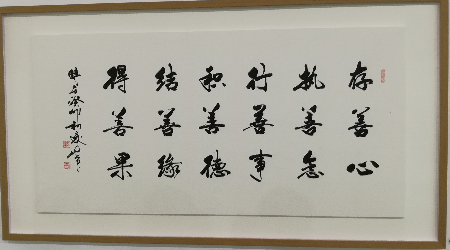 存善心
执善念
行善事
积善德
结善缘
得善果